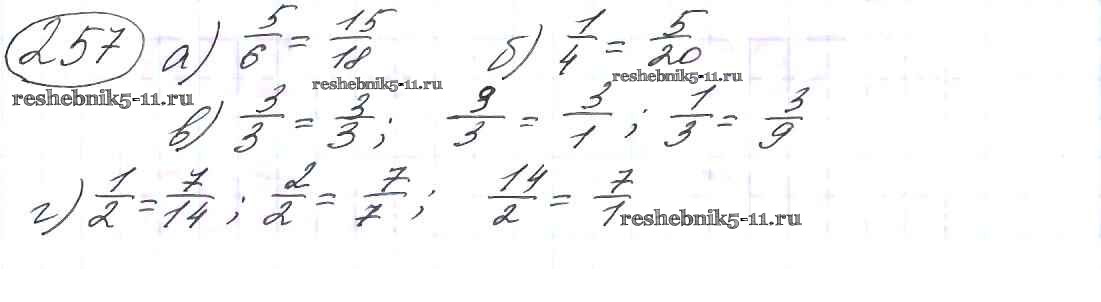 257 а) 5/6 = 15/18 б) 1/4 = 5/20
reshebnik5-11.ru reshebnik5-11.ru reshebnik5-11.ru
в) 3/3 = 3/3; 9/3 = 3/1; 1/3 = 3/9
г) 1/2 = 7/14; 2/2 = 7/7; 14/2 = 7/1
reshebnik5-11.ru